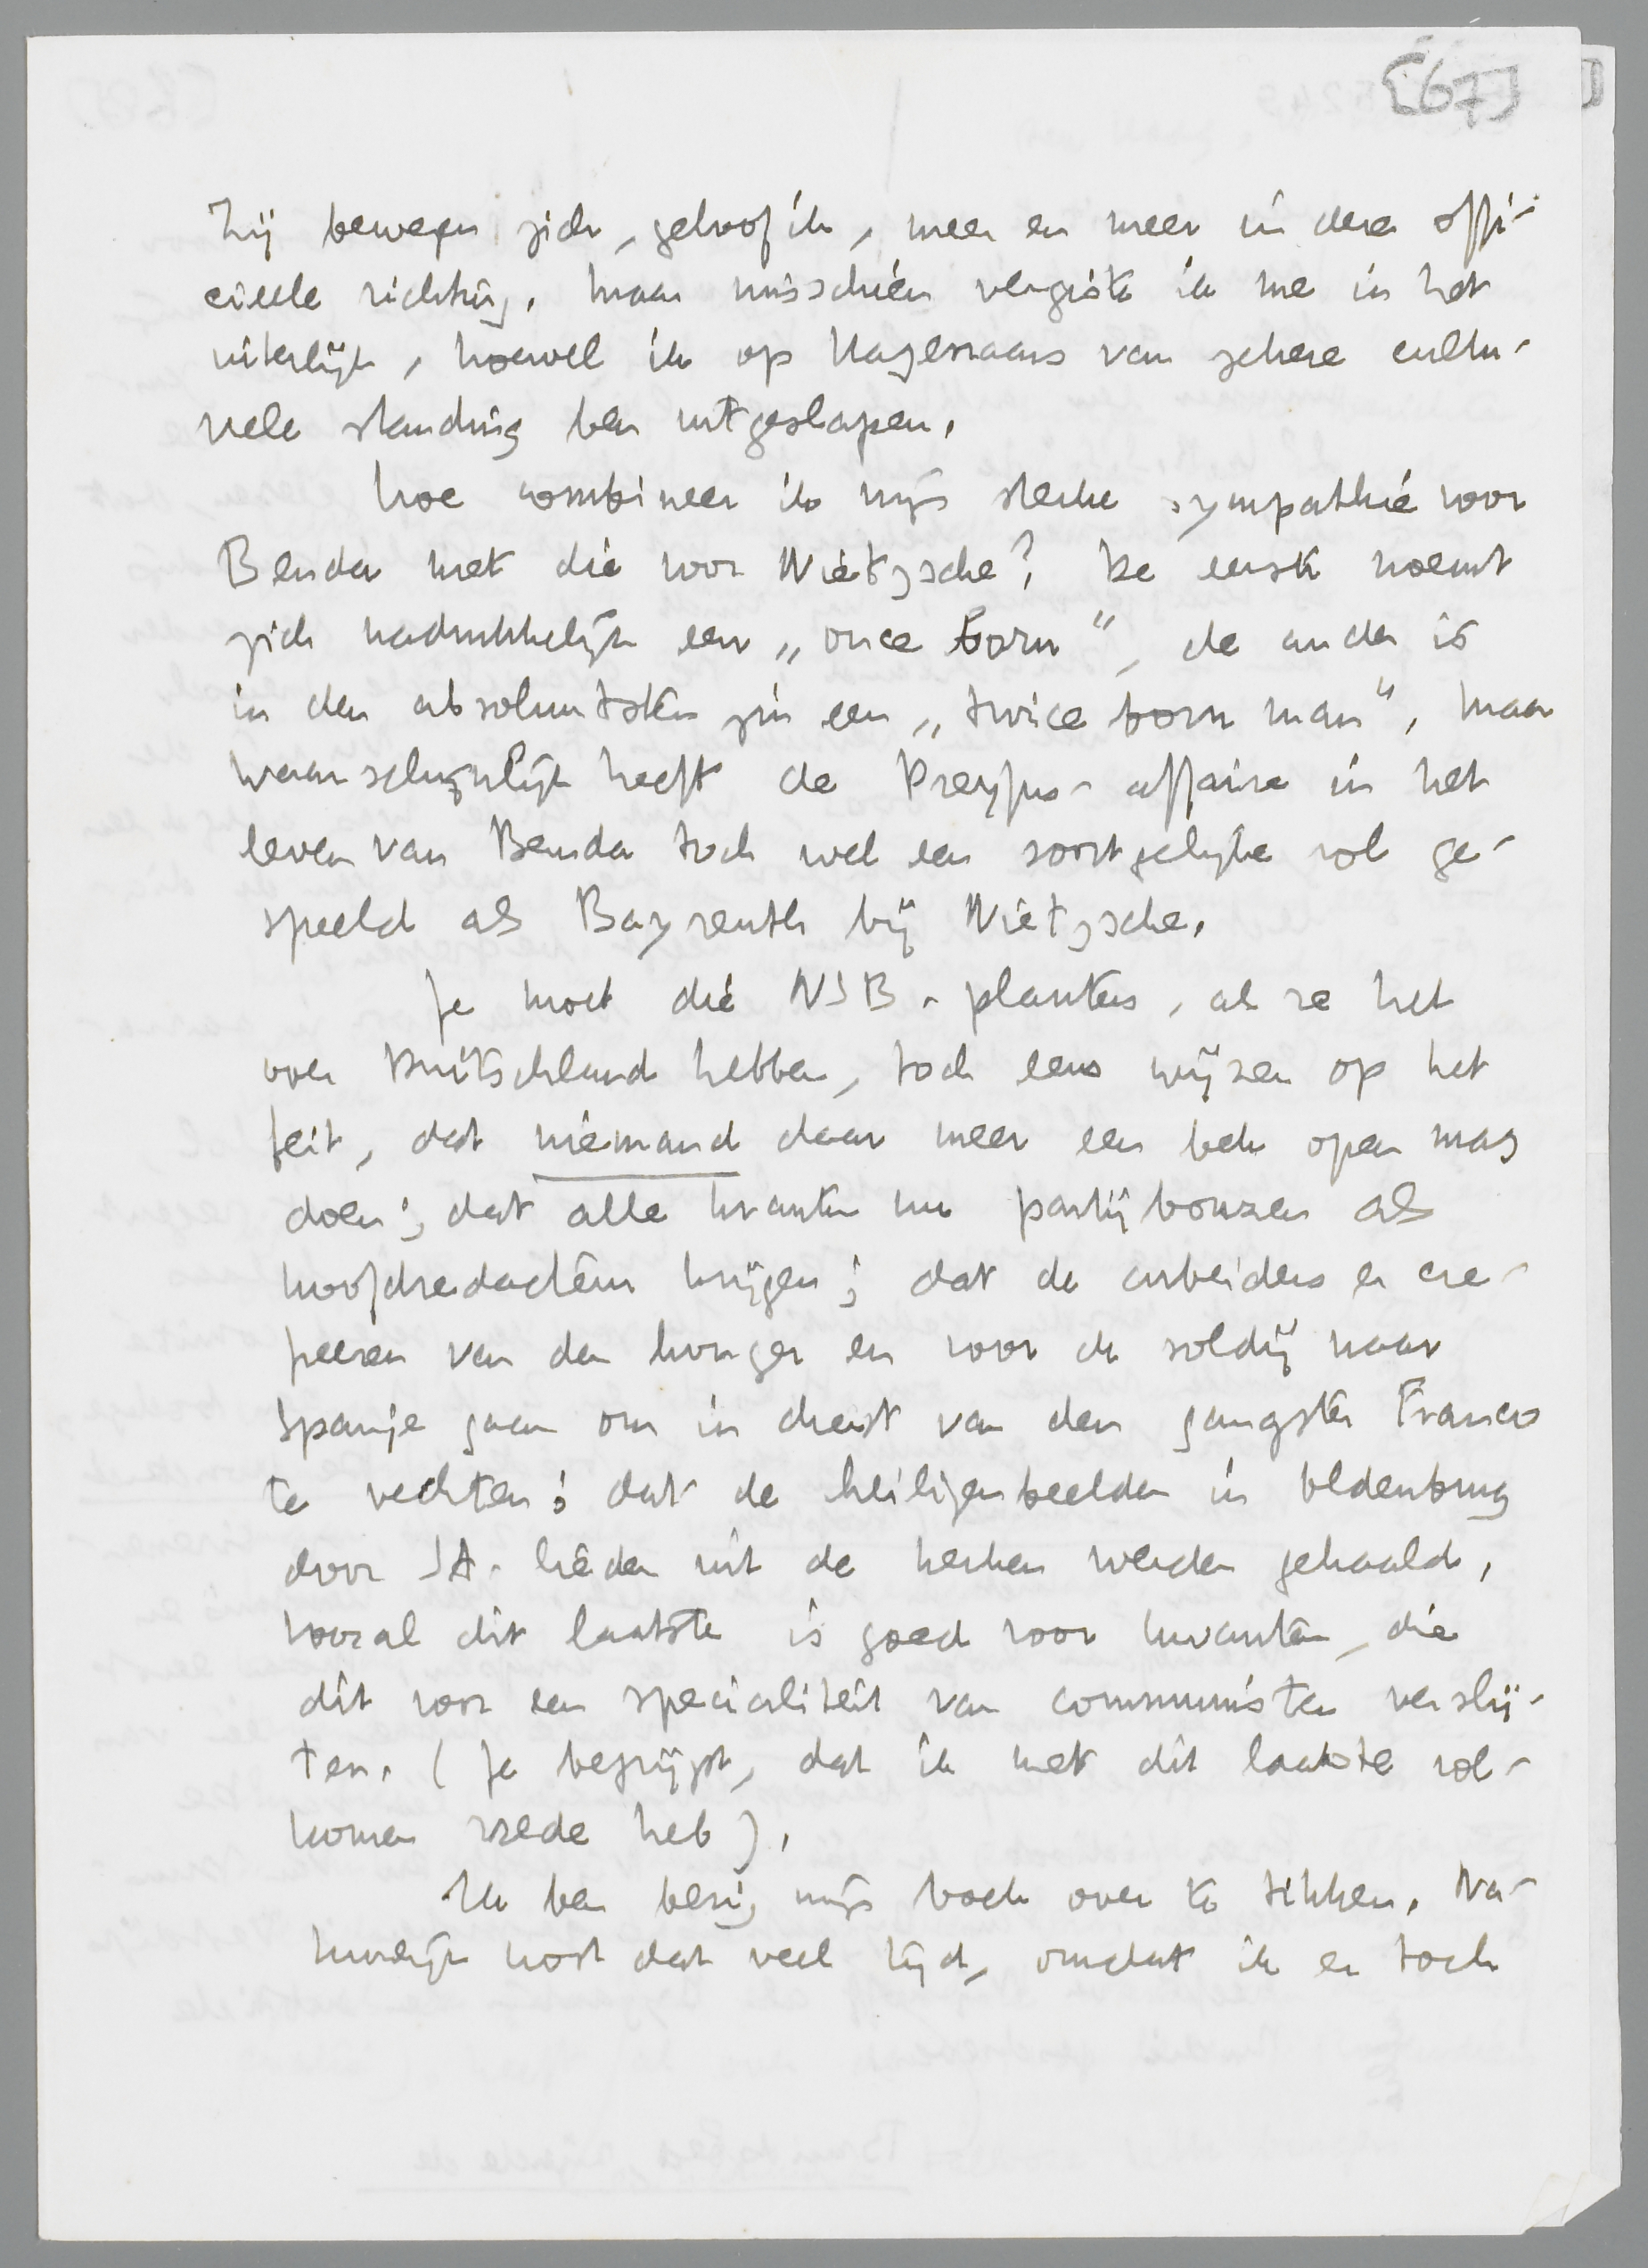 [67]
Zij bewegen zich, geloof ik, meer en meer in deze offi-
cieele richting. Maar misschien vergist ik me in het
uiterlijk, hoewel ik op Hagenaars van zekere cultu-
reele standing ben uitgeslapen.
Hoe combineer ik mijn sterke sympathie voor
Benda met die voor Nietzsche? De eerste noemt
zich nadrukkelijk een „once born", de ander is
in den absoluutsten zin een „twice born man", maar
waarschijnlijk heeft de Dreyfus-affaire in het
leven van Benda toch wel een soortgelijke rol ge-
speeld als Bayreuth bij Nietzsche.
Je moet die NSB-planters, als ze het
over Duitschland hebben, toch eens wijzen op het
feit, dat niemand daar meer een bek open mag
doen; dat alle kranten nu partijbonzen als
hoofdredacteur krijgen; dat de arbeiders er cre-
peeren van den honger en voor de soldij naar
Spanje gaan om in dienst van den gangster Franco
te vechten; dat de heiligenbeelden in Oldenburg
door SA-lieden uit de kerken werden gehaald.
Vooral dit laatste is goed voor kwanten, die
dit voor een specialiteit van communisten verslij-
ten. (Je begrijpt, dat ik met dit laatste vol-
komen vrede heb).
Ik ben bezig mijn boek over te tikken. Na-
tuurlijk kost dat veel tijd, omdat ik er toch